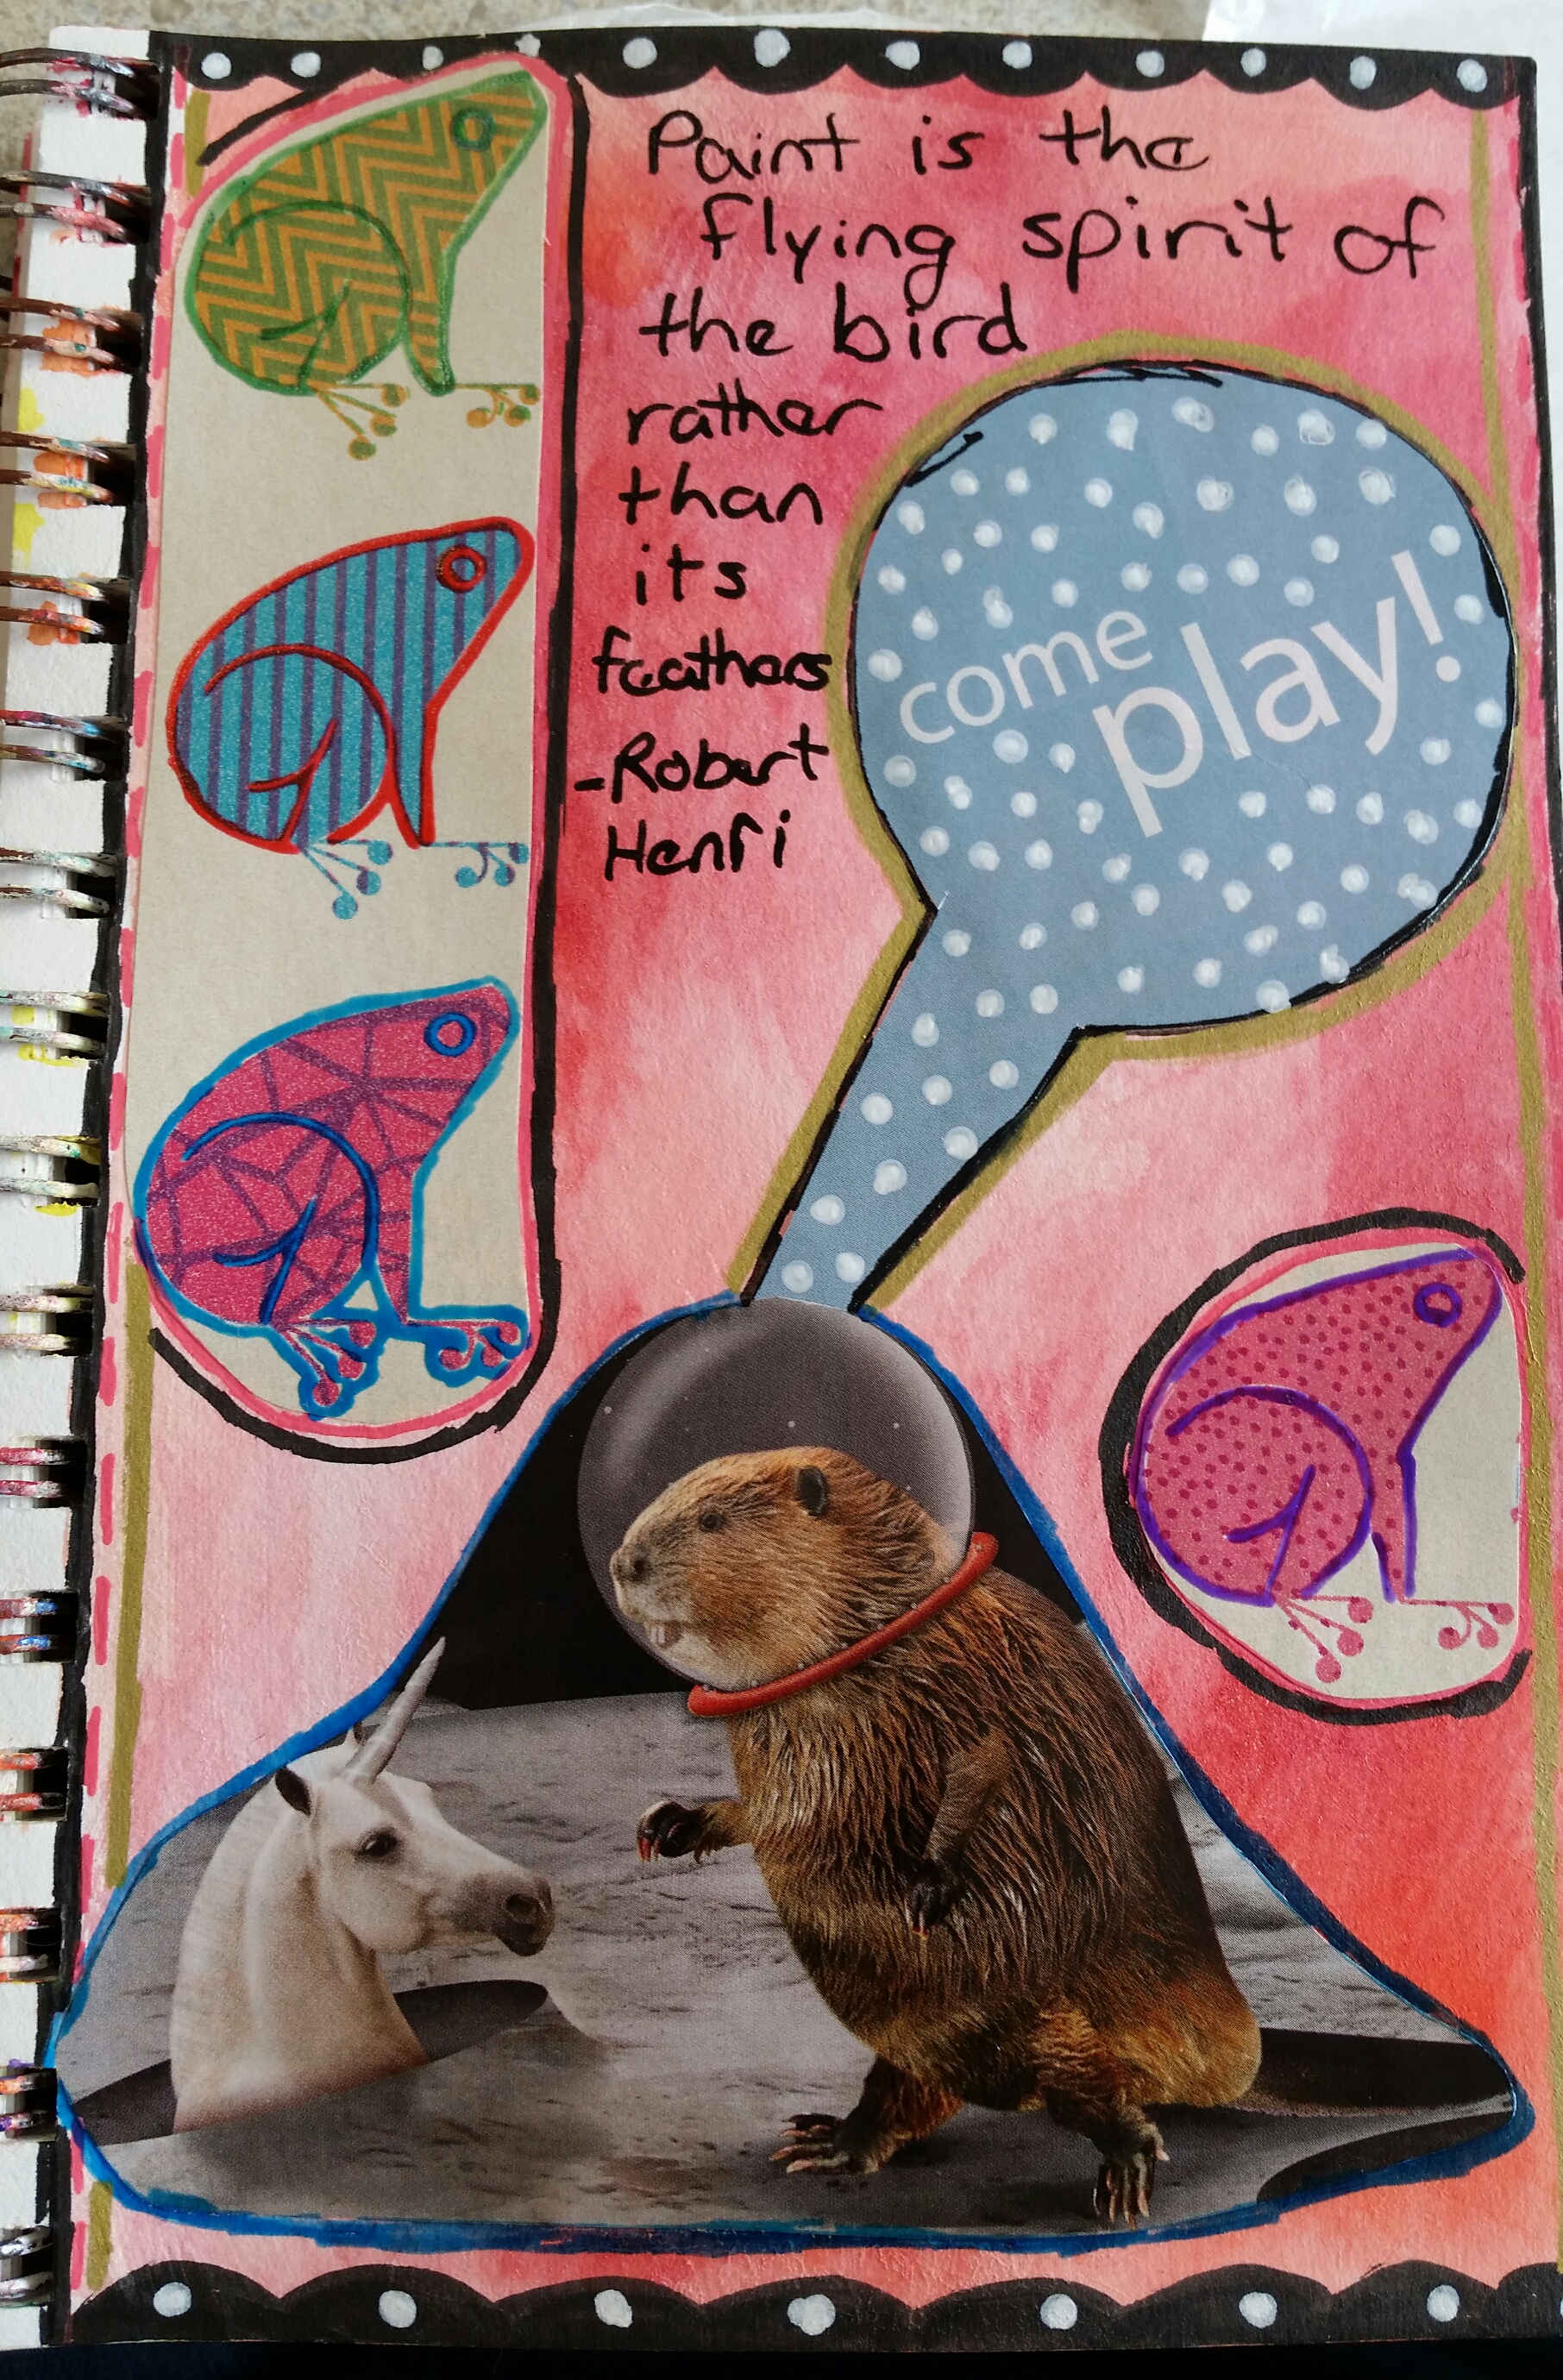 Paint is the
flying spirit of
the bird
rather
than
its
feathers
-Robert
Henri
come
play!